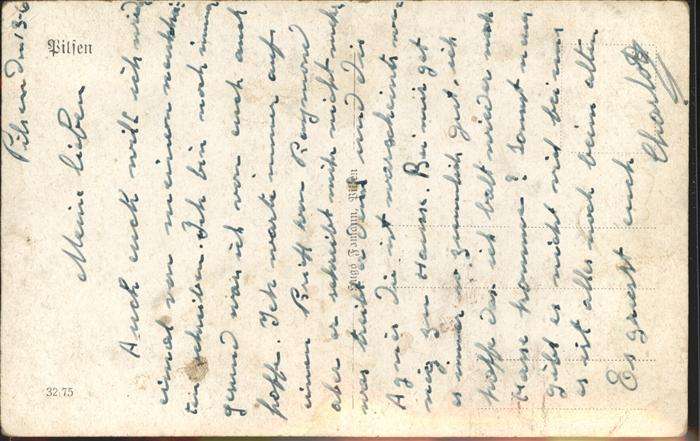 Pilsen
Pilsen den 13-6
Meine lieben
Auch euch will ich wieder
einmal von meinen
schreiben. Ich bin noch immer
gesund was ich von euch auch
hoffe. Ich warte immer auf
einen Brief von Raymond
aber er schreibt mir nicht mehr
was treibt er denn und die
Agnes die ist warscheints
nig zu Hause. Bei mir get
es immer so zimmlich gut, ich
hoffe das ich balt wieder nach
Hause komme? Sonst neues
gibt es nicht viel bei uns
es ist alles noch beim alten
Es grüsst euch
Charlotte
Hugo Fantapn, Pilsen
32,75